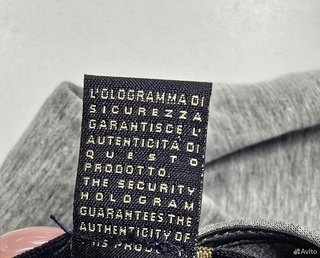 L'OLOGRAMMA DI
SICUREZZA
GARANTISCE L'
AUTENTICITÀ DI
QUESTO
PRODOTTO.
THE SECURITY
HOLOGRAM
GUARANTEES THE
AUTHENTICITY OF
Avito